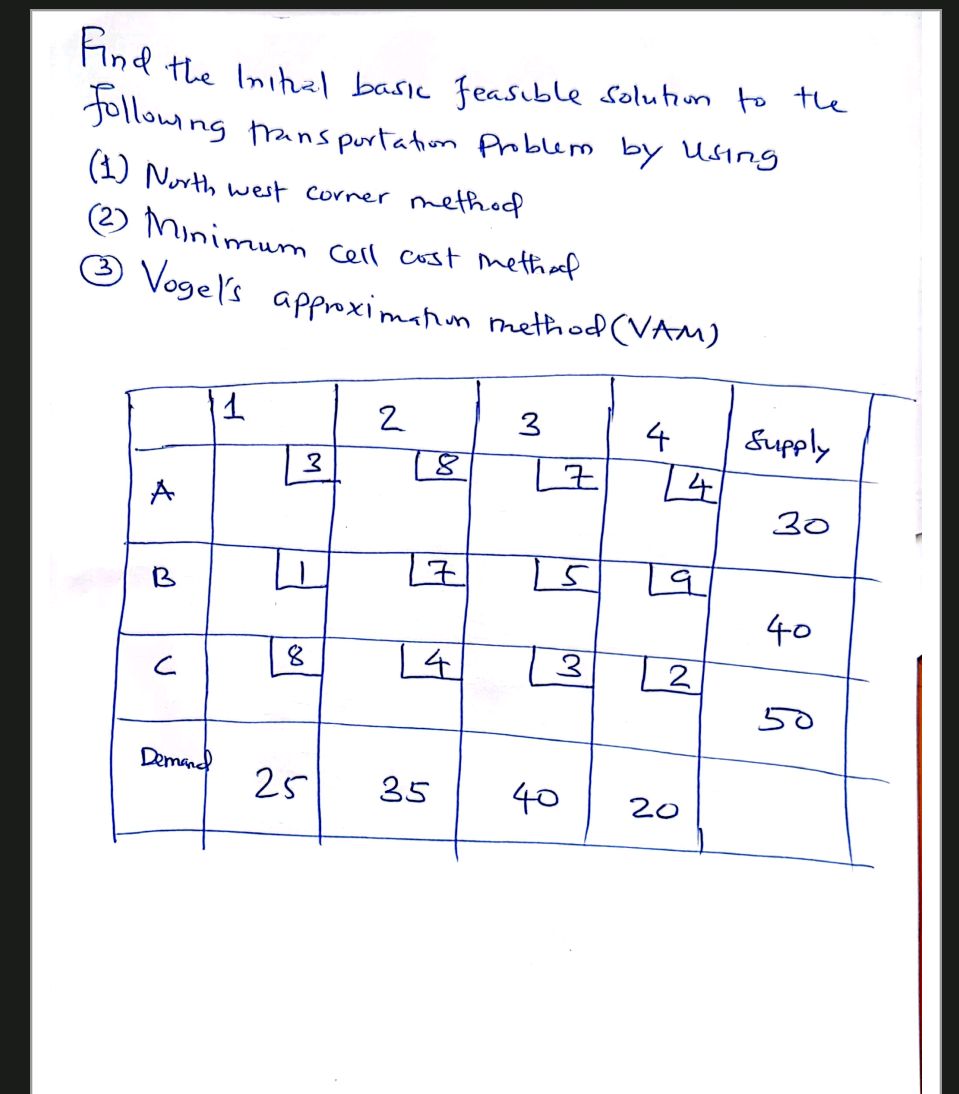 Find the Initial basic feasible solution to the
following transportation Problem by Using
(1) North west corner method
(2) Minimum cell cost method
(3) Vogel's approximation method (VAM)
1 2 3 4 Supply
A 3 8 7 4 30
B 1 7 5 9 40
C 8 4 3 2 50
Demand 25 35 40 20